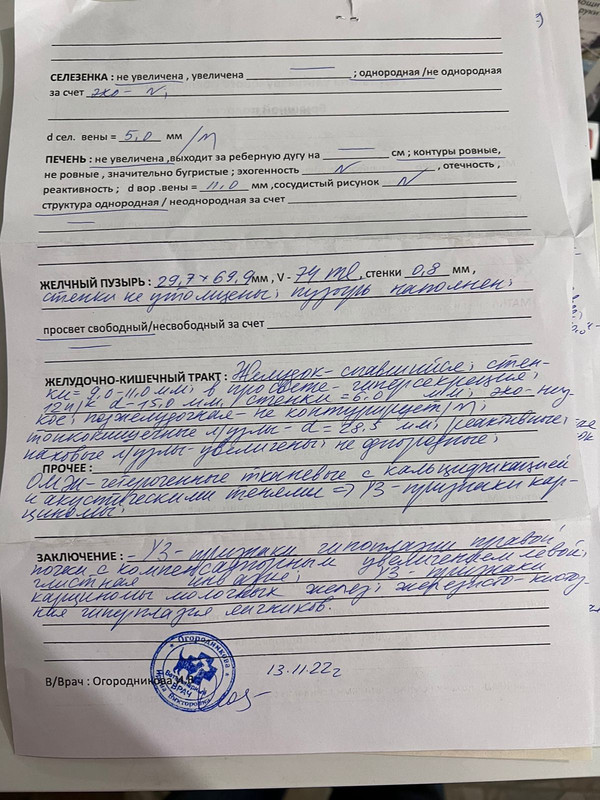 СЕЛЕЗЕНКА : не увеличена , увеличена ; однородная /не однородная
за счет эхо - N,
d сел. вены = 5,0 мм /N
ПЕЧЕНЬ : не увеличена ,выходит за реберную дугу на см ; контуры ровные,
не ровные , значительно бугристые ; эхогенность N , отечность ,
реактивность ; d вор .вены = 11,0 мм ,сосудистый рисунок N
структура однородная / неоднородная за счет
ЖЕЛЧНЫЙ ПУЗЫРЬ : 29,7 × 69,9 мм , V - 74 ml , стенки 0,8 мм ,
стенки не утолщены; пузырь наполнен;
просвет свободный/несвободный за счет
ЖЕЛУДОЧНО-КИШЕЧНЫЙ ТРАКТ : Желудок - спавшийся; стен-
ки = 9,0-11,0 мм; в просвете - гиперсекреция;
12 п/к d - 15,0 мм, стенки = 6,0 мм;
поджелудочная - не контурирует /N;
тонкокишечные л/узлы - d = 28,5 мм, /реактивные;
паховые л/узлы - увеличены; не однородные;
ПРОЧЕЕ :
ОМЖ - гетерогенные тканевые с кальцификацией
и акустическими тенями => УЗ - признаки кар-
циномы;
ЗАКЛЮЧЕНИЕ : - УЗ - признаки гипоплазии правой
почки с компенсаторным увеличением левой;
глистная инвазия; УЗ - признаки
карциномы молочных желез; железисто-кистоз-
ная гиперплазия яичников.
В/Врач : Огородникова И.В.
13.11.22г
Огородникова
Ветеринарный
ВРАЧ
Викторовна